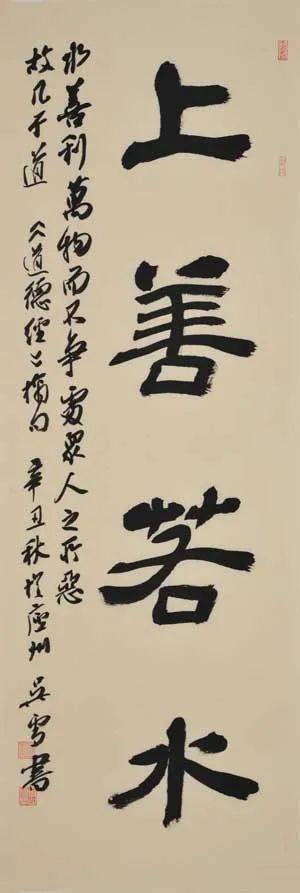 上善若水
水善利萬物而不争處眾人之所惡
故几于道 《道德經》摘句 辛丑秋於廬州 吴雪書